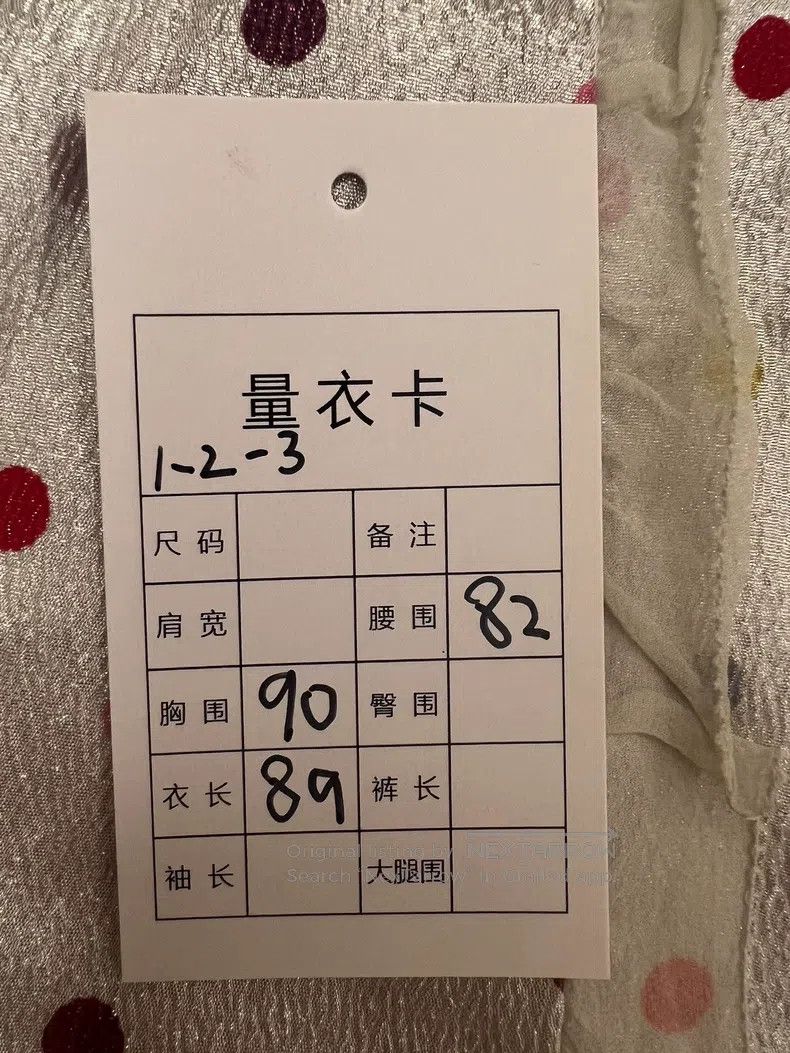 量衣卡
1-2-3
尺码 备注
肩宽 腰围 82
胸围 90 臀围
衣长 89 裤长
袖长 大腿围
Original listing by NEXTARROW